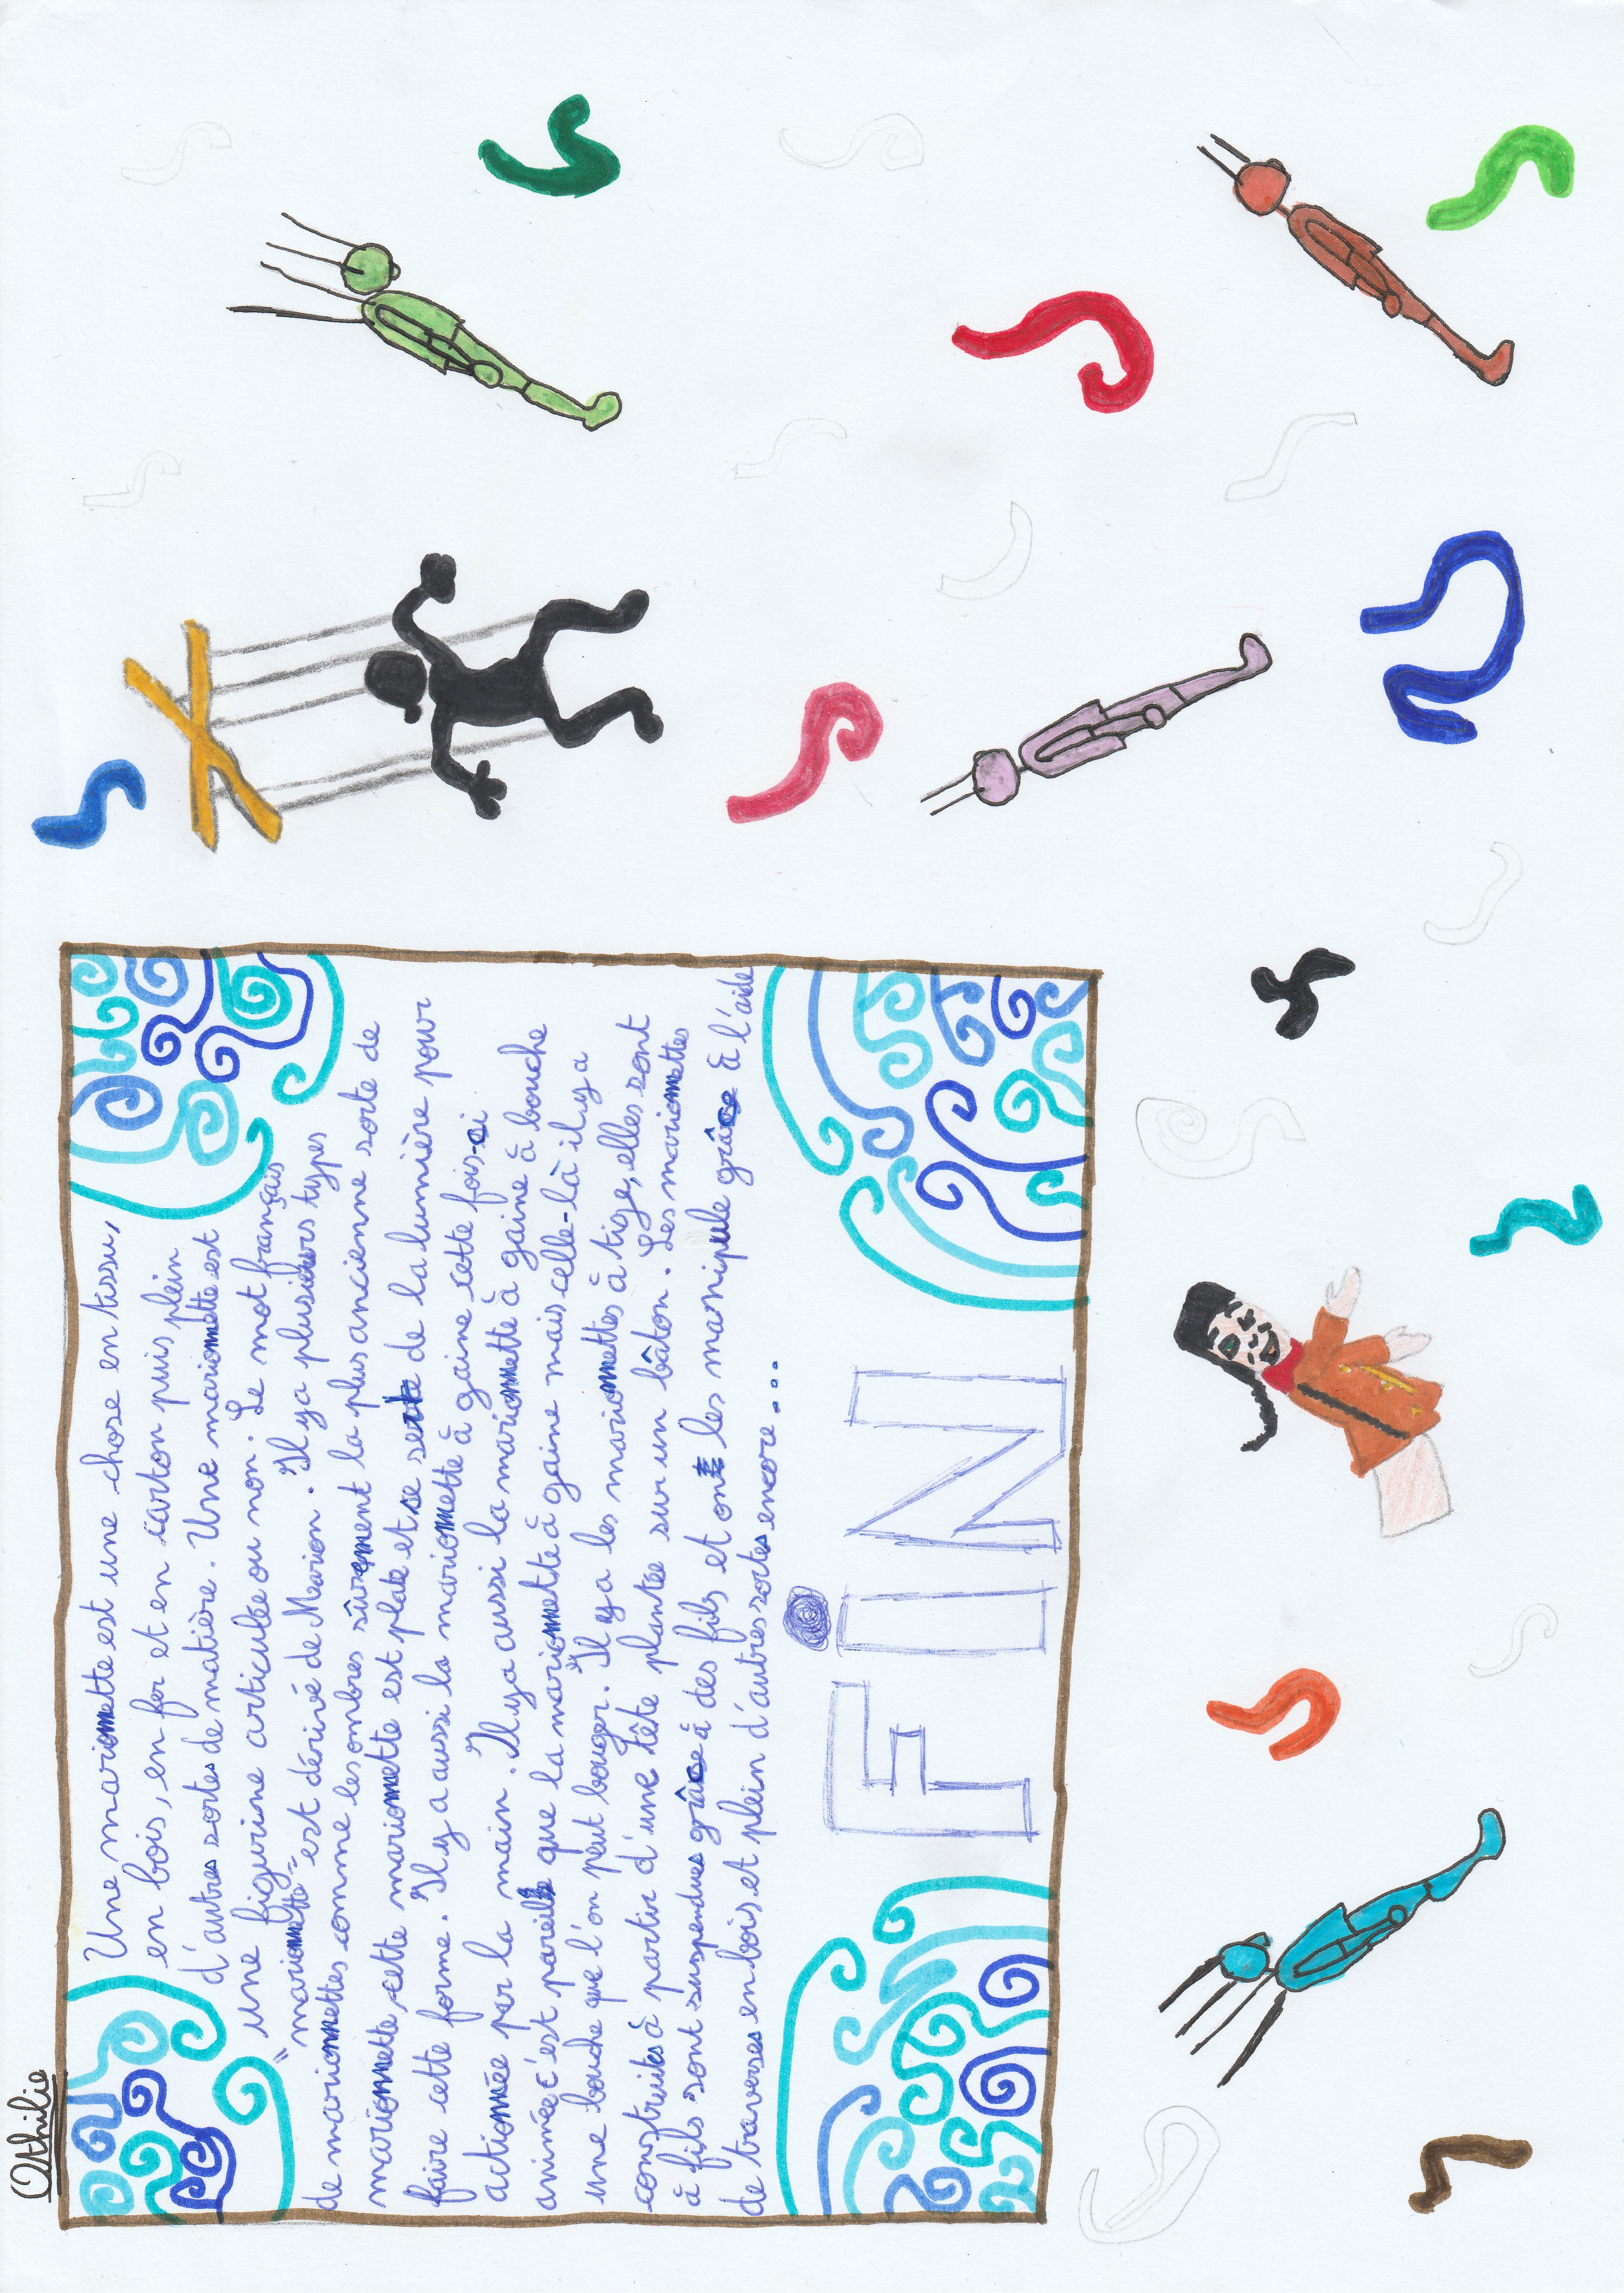 Othilie
Une marionnette est une chose en tissu,
en bois, en fer et en carton puis plein
d'autres sortes de matière. Une marionnette est
une figurine articulée ou non. Le mot français
"marionnette" est dérivé de Marion. Il y a plusieurs types
de marionnettes comme les ombres sûrement la plus ancienne sorte de
marionnette, cette marionnette est plate et se sert de la lumière pour
faire cette forme. Il y a aussi la marionnette à gaine cette fois-ci
actionnée par la main. Il y a aussi la marionnette à gaine à bouche
animée c'est pareille que la marionnette à gaine mais celle-là il y a
une bouche que l'on peut bouger. Il y a les marionnettes à tige, elles sont
construites à partir d'une tête plantée sur un bâton. Les marionnettes
à fils sont suspendues grâce à des fils et on les manipule grâce à l'aide
de traverses en bois et plein d'autres sortes encore...
FiN